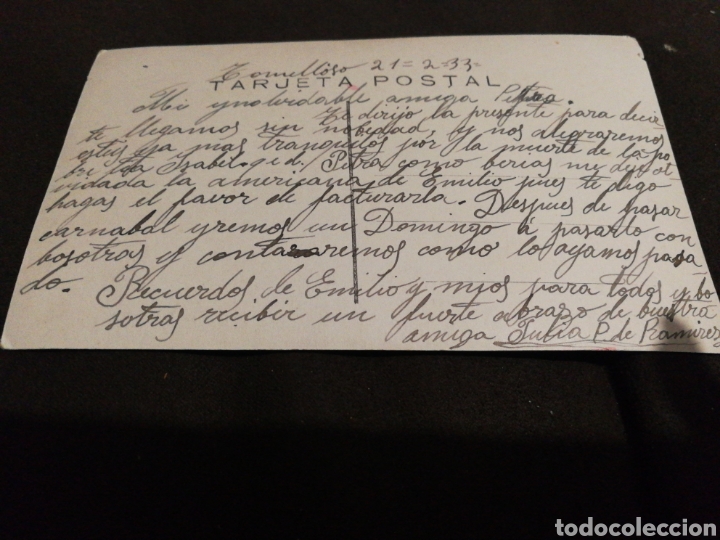 Tomelloso 21-2-33-
TARJETA POSTAL
Mi ynolvidable amiga Petra.
Te dirijo la presente para decir
te llegamos sin nobedad, y nos alegraremos
esteis ya mas tranquilos por la muerte de la po
bre tia Isabel. q.e.d. Petra como berias me deje ol
vidada la americana de Emilio pues te digo
hagas el favor de facturarla. Despues de pasar
carnabal yremos un Domingo á pasarlo con
bosotros y contaremos como lo ayamos pasa
do.
Recuerdos de Emilio y mios para todos y bo
sotras recibir un fuerte abrazo de buestra
amiga Julia P. de Ramirez
todocoleccion